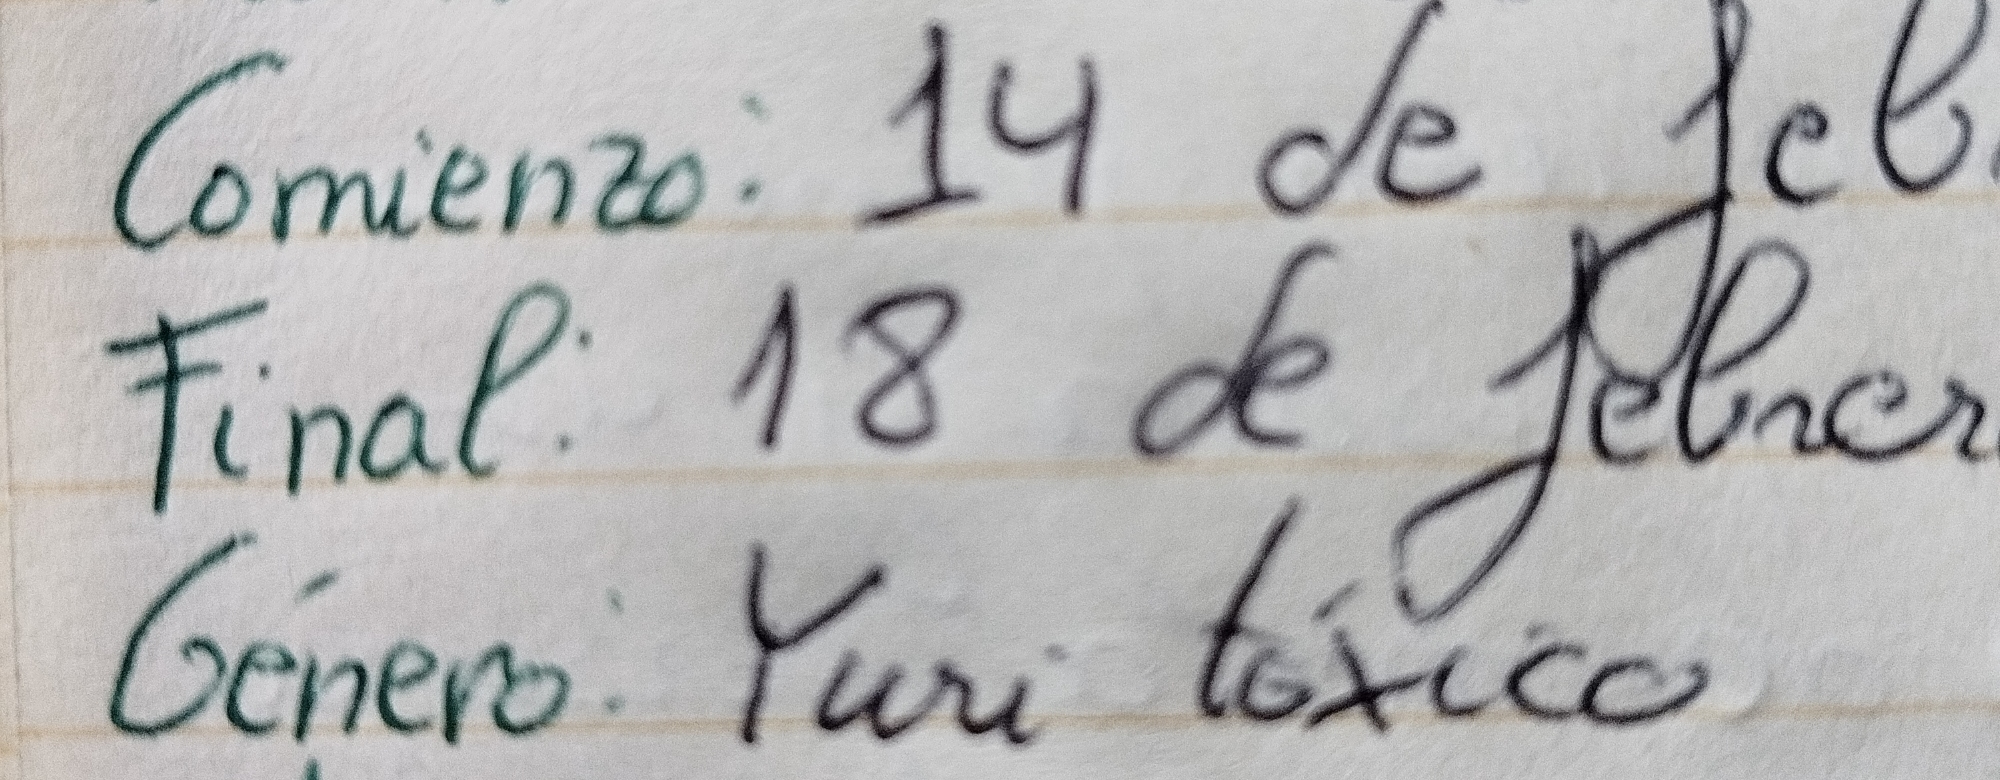 Comienzo: 14 de feb
Final: 18 de febrer
Género: Yuri tóxico